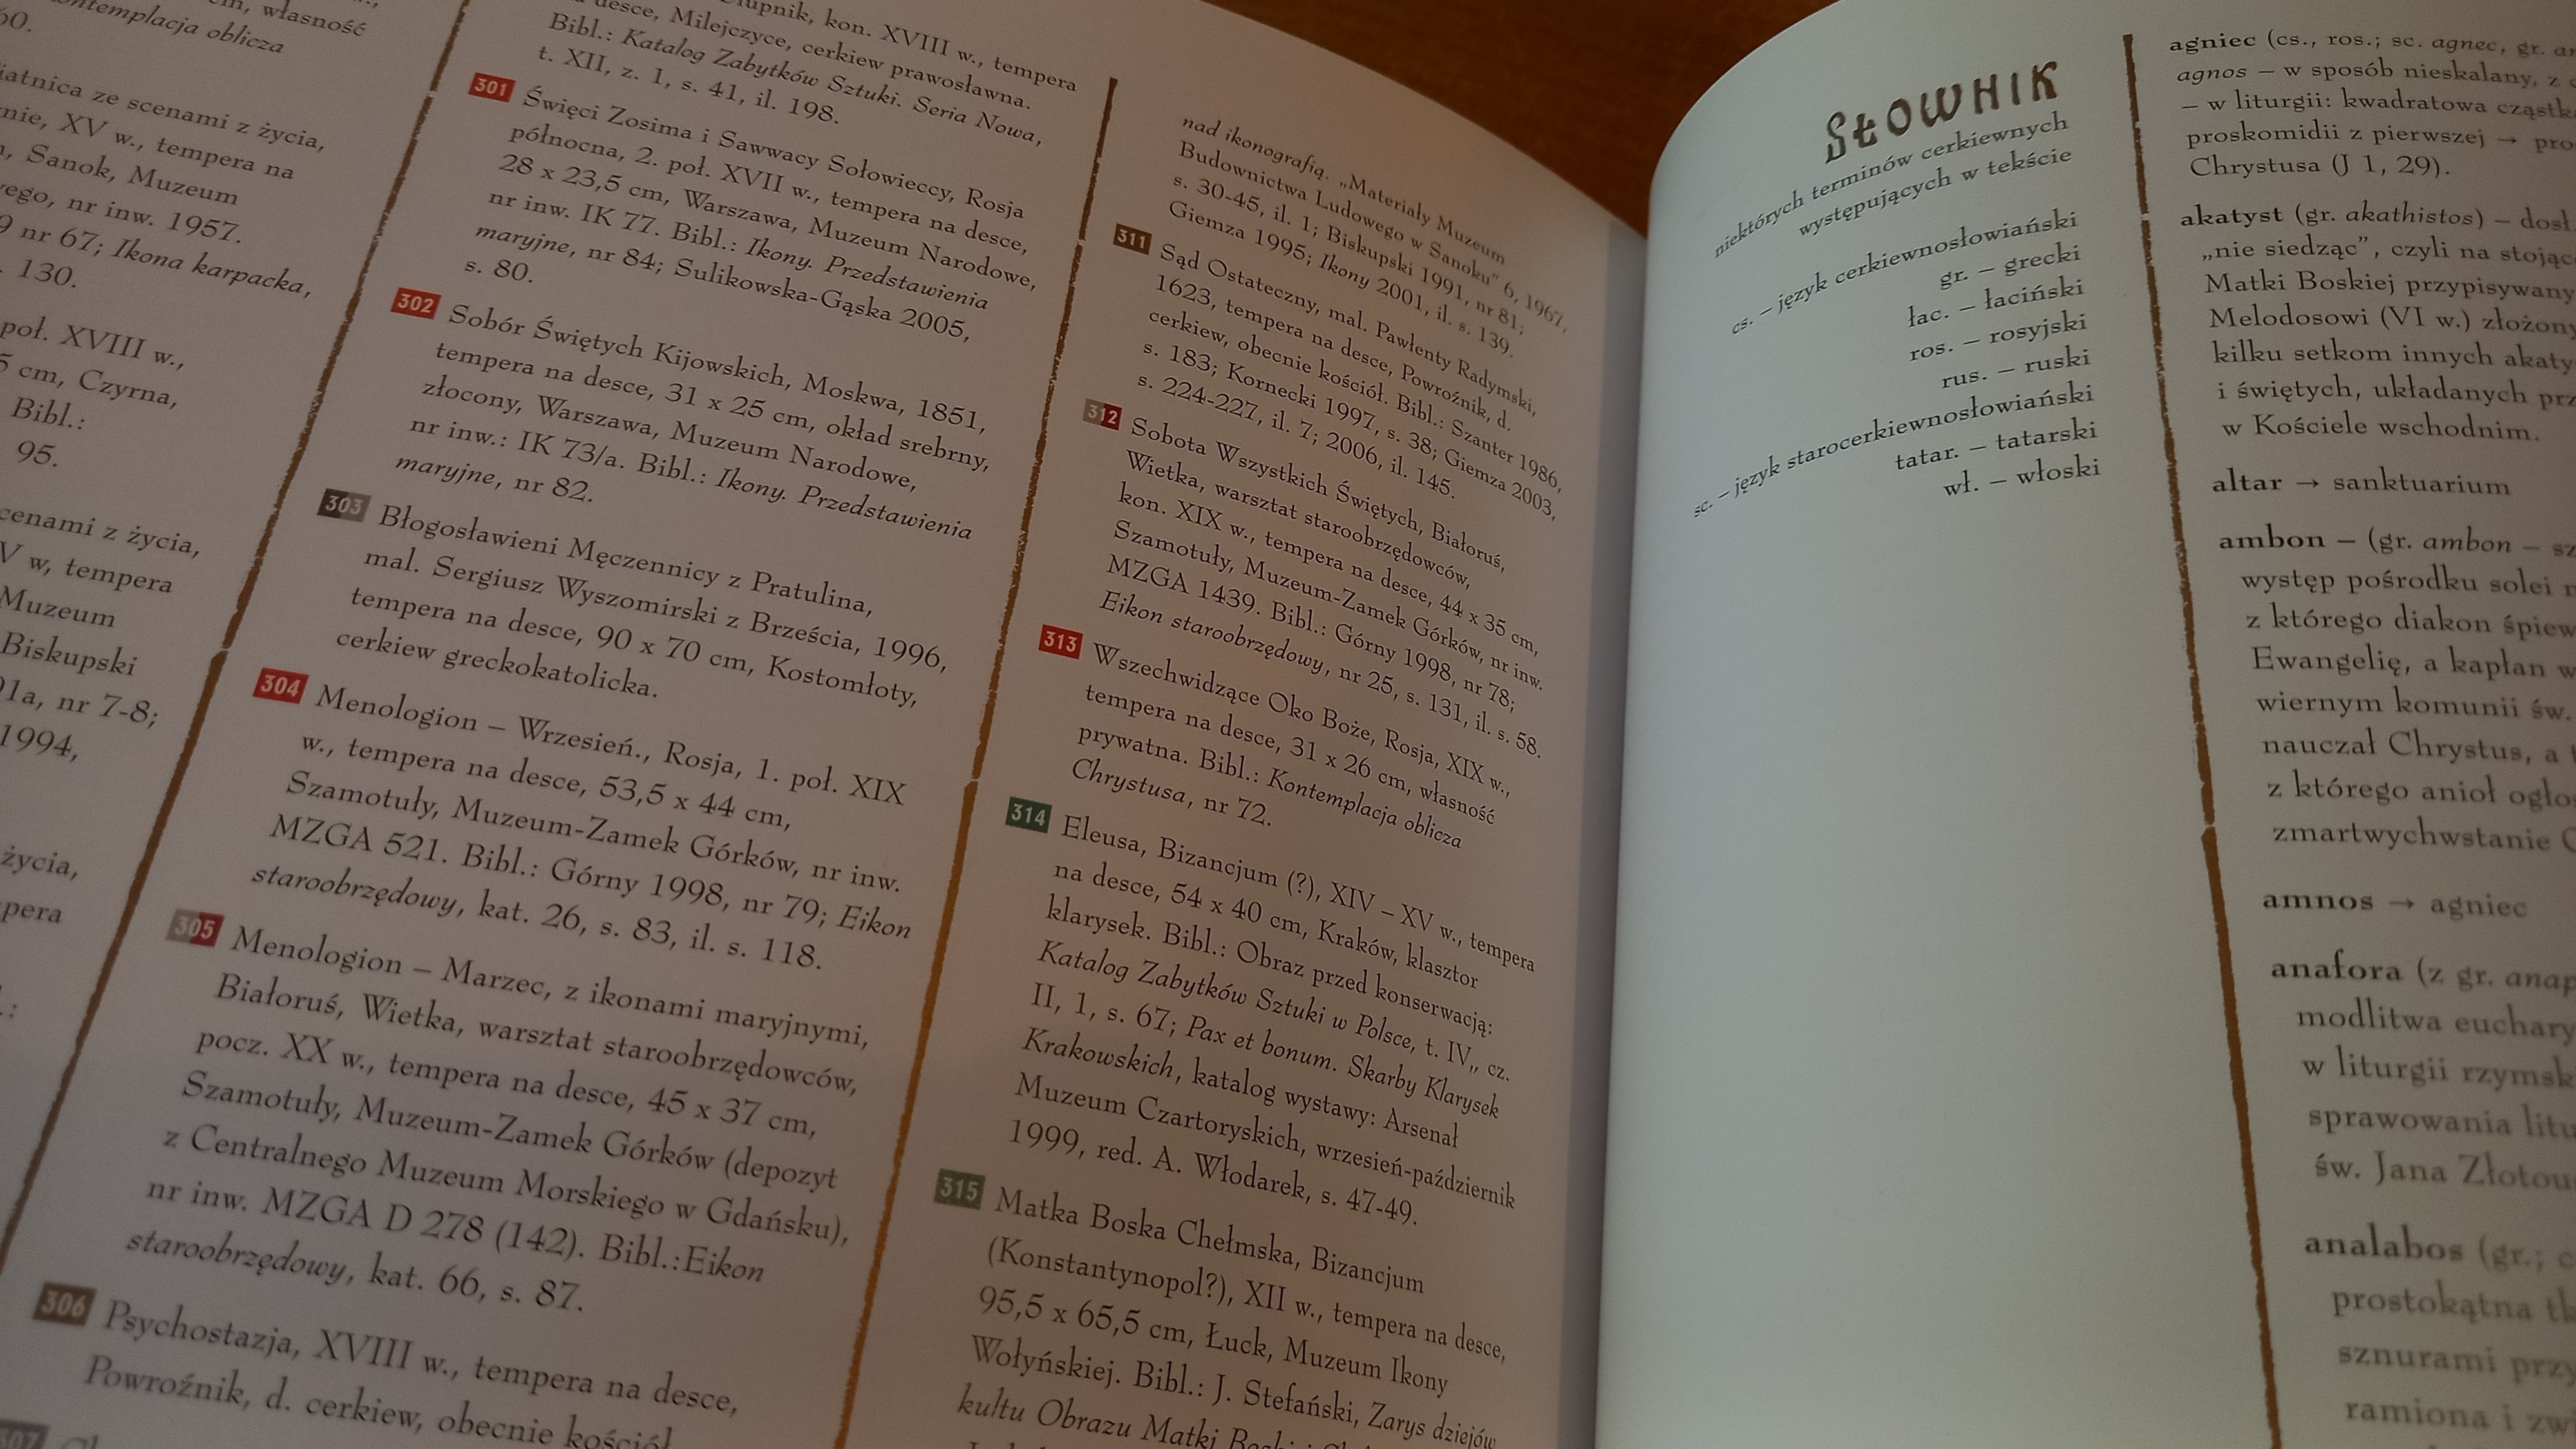 własność
ontemplacja oblicza
60.
iatnica ze scenami z życia,
nie, XV w., tempera na
Sanok, Muzeum
nr inw. 1957.
nr 67; Ikona karpacka,
130.
poł. XVIII w.,
5 cm, Czyrna,
Bibl.:
95.
cenami z życia,
V w, tempera
Muzeum
Biskupski
91a, nr 7-8;
1994,
życia,
pera
kon. XVIII w., tempera
desce, Milejczyce, cerkiew prawosławna.
Bibl.: Katalog Zabytków Sztuki. Seria Nowa,
t. XII, z. 1, s. 41, il. 198.
301 Święci Zosima i Sawwacy Sołowieccy, Rosja
północna, 2. poł. XVII w., tempera na desce,
28 x 23,5 cm, Warszawa, Muzeum Narodowe,
nr inw. IK 77. Bibl.: Ikony. Przedstawienia
maryjne, nr 84; Sulikowska-Gąska 2005,
s. 80.
302 Sobór Świętych Kijowskich, Moskwa, 1851,
tempera na desce, 31 x 25 cm, okład srebrny,
złocony, Warszawa, Muzeum Narodowe,
nr inw.: IK 73/a. Bibl.: Ikony. Przedstawienia
maryjne, nr 82.
303 Błogosławieni Męczennicy z Pratulina,
mal. Sergiusz Wyszomirski z Brześcia, 1996,
tempera na desce, 90 x 70 cm, Kostomłoty,
cerkiew greckokatolicka.
304 Menologion – Wrzesień., Rosja, 1. poł. XIX
w., tempera na desce, 53,5 x 44 cm,
Szamotuły, Muzeum-Zamek Górków, nr inw.
MZGA 521. Bibl.: Górny 1998, nr 79; Eikon
staroobrzędowy, kat. 26, s. 83, il. s. 118.
305 Menologion – Marzec, z ikonami maryjnymi,
Białoruś, Wietka, warsztat staroobrzędowców,
pocz. XX w., tempera na desce, 45 x 37 cm,
Szamotuły, Muzeum-Zamek Górków (depozyt
z Centralnego Muzeum Morskiego w Gdańsku),
nr inw. MZGA D 278 (142). Bibl.:Eikon
staroobrzędowy, kat. 66, s. 87.
306 Psychostazja, XVIII w., tempera na desce,
Powroźnik, d. cerkiew, obecnie kościół
307
nad ikonografią. „Materiały Muzeum
Budownictwa Ludowego w Sanoku" 6, 1967,
s. 30-45, il. 1; Biskupski 1991, nr 81;
Giemza 1995; Ikony 2001, il. s. 139.
311 Sąd Ostateczny, mal. Pawłenty Radymski,
1623, tempera na desce, Powroźnik, d.
cerkiew, obecnie kościół. Bibl.: Szanter 1986,
s. 183; Kornecki 1997, s. 38; Giemza 2003,
s. 224-227, il. 7; 2006, il. 145.
312 Sobota Wszystkich Świętych, Białoruś,
Wietka, warsztat staroobrzędowców,
kon. XIX w., tempera na desce, 44 x 35 cm,
Szamotuły, Muzeum-Zamek Górków, nr inw.
MZGA 1439. Bibl.: Górny 1998, nr 78;
Eikon staroobrzędowy, nr 25, s. 131, il. s. 58.
313 Wszechwidzące Oko Boże, Rosja, XIX w.,
tempera na desce, 31 x 26 cm, własność
prywatna. Bibl.: Kontemplacja oblicza
Chrystusa, nr 72.
314 Eleusa, Bizancjum (?), XIV – XV w., tempera
na desce, 54 x 40 cm, Kraków, klasztor
klarysek. Bibl.: Obraz przed konserwacją:
Katalog Zabytków Sztuki w Polsce, t. IV,, cz.
II, 1, s. 67; Pax et bonum. Skarby Klarysek
Krakowskich, katalog wystawy: Arsenał
Muzeum Czartoryskich, wrzesień-październik
1999, red. A. Włodarek, s. 47-49.
315 Matka Boska Chełmska, Bizancjum
(Konstantynopol?), XII w., tempera na desce,
95,5 x 65,5 cm, Łuck, Muzeum Ikony
Wołyńskiej. Bibl.: J. Stefański, Zarys dziejów
kultu Obrazu Matki
SŁOWNIK
niektórych terminów cerkiewnych
występujących w tekście
cs. – język cerkiewnosłowiański
gr. – grecki
łac. – łaciński
ros. – rosyjski
rus. – ruski
sc. – język starocerkiewnosłowiański
tatar. – tatarski
wł. – włoski
agniec (cs., ros.; sc. agnec, gr.
agnos – w sposób nieskalany, z
– w liturgii: kwadratowa cząstk
proskomidii z pierwszej → pro
Chrystusa (J 1, 29).
akatyst (gr. akathistos) – dosł.
„nie siedząc", czyli na stojąc
Matki Boskiej przypisywany
Melodosowi (VI w.) złożony
kilku setkom innych akaty
i świętych, układanych prz
w Kościele wschodnim.
altar → sanktuarium
ambon – (gr. ambon – sz
występ pośrodku solei
z którego diakon śpiew
Ewangelię, a kapłan w
wiernym komunii św.
nauczał Chrystus, a
z którego anioł ogło
zmartwychwstanie
amnos → agniec
anafora (z gr. anap
modlitwa euchary
w liturgii rzymsk
sprawowania litu
św. Jana Złotou
analabos (gr.;
prostokątna
sznurami przy
ramiona i